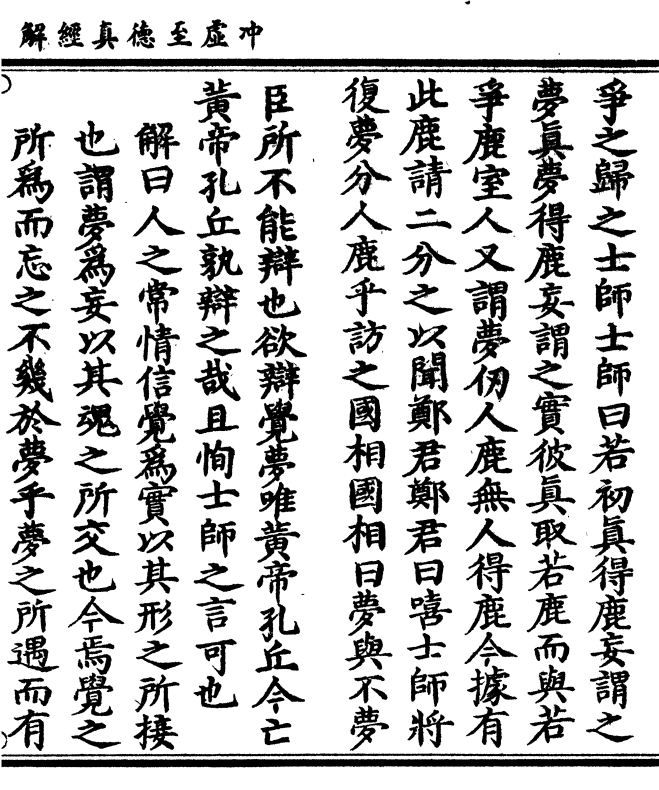 冲虛至德真經解
爭之歸之士師士師曰若初眞得鹿妄謂之
夢眞夢得鹿妄謂之實彼眞取若鹿而與若
爭鹿室人又謂夢仞人鹿無人得鹿今據有
此鹿請二分之以聞鄭君鄭君曰嘻士師將
復夢分人鹿乎訪之國相國相曰夢與不夢
臣所不能辯也欲辯覺夢唯黃帝孔丘今亡
黃帝孔丘孰辯之哉且恂士師之言可也
解曰人之常情信覺爲實以其形之所接
也謂夢爲妄以其魂之所交也今焉覺之
所爲而忘之不幾於夢乎夢之所遇而有